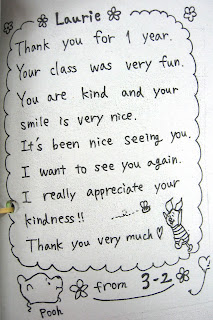 Laurie
Thank you for 1 year.
Your class was very fun.
You are kind and your
smile is very nice.
It's been nice seeing you.
I want to see you again.
I really appreciate your
kindness!!
Thank you very much♡
from 3-2
Pooh